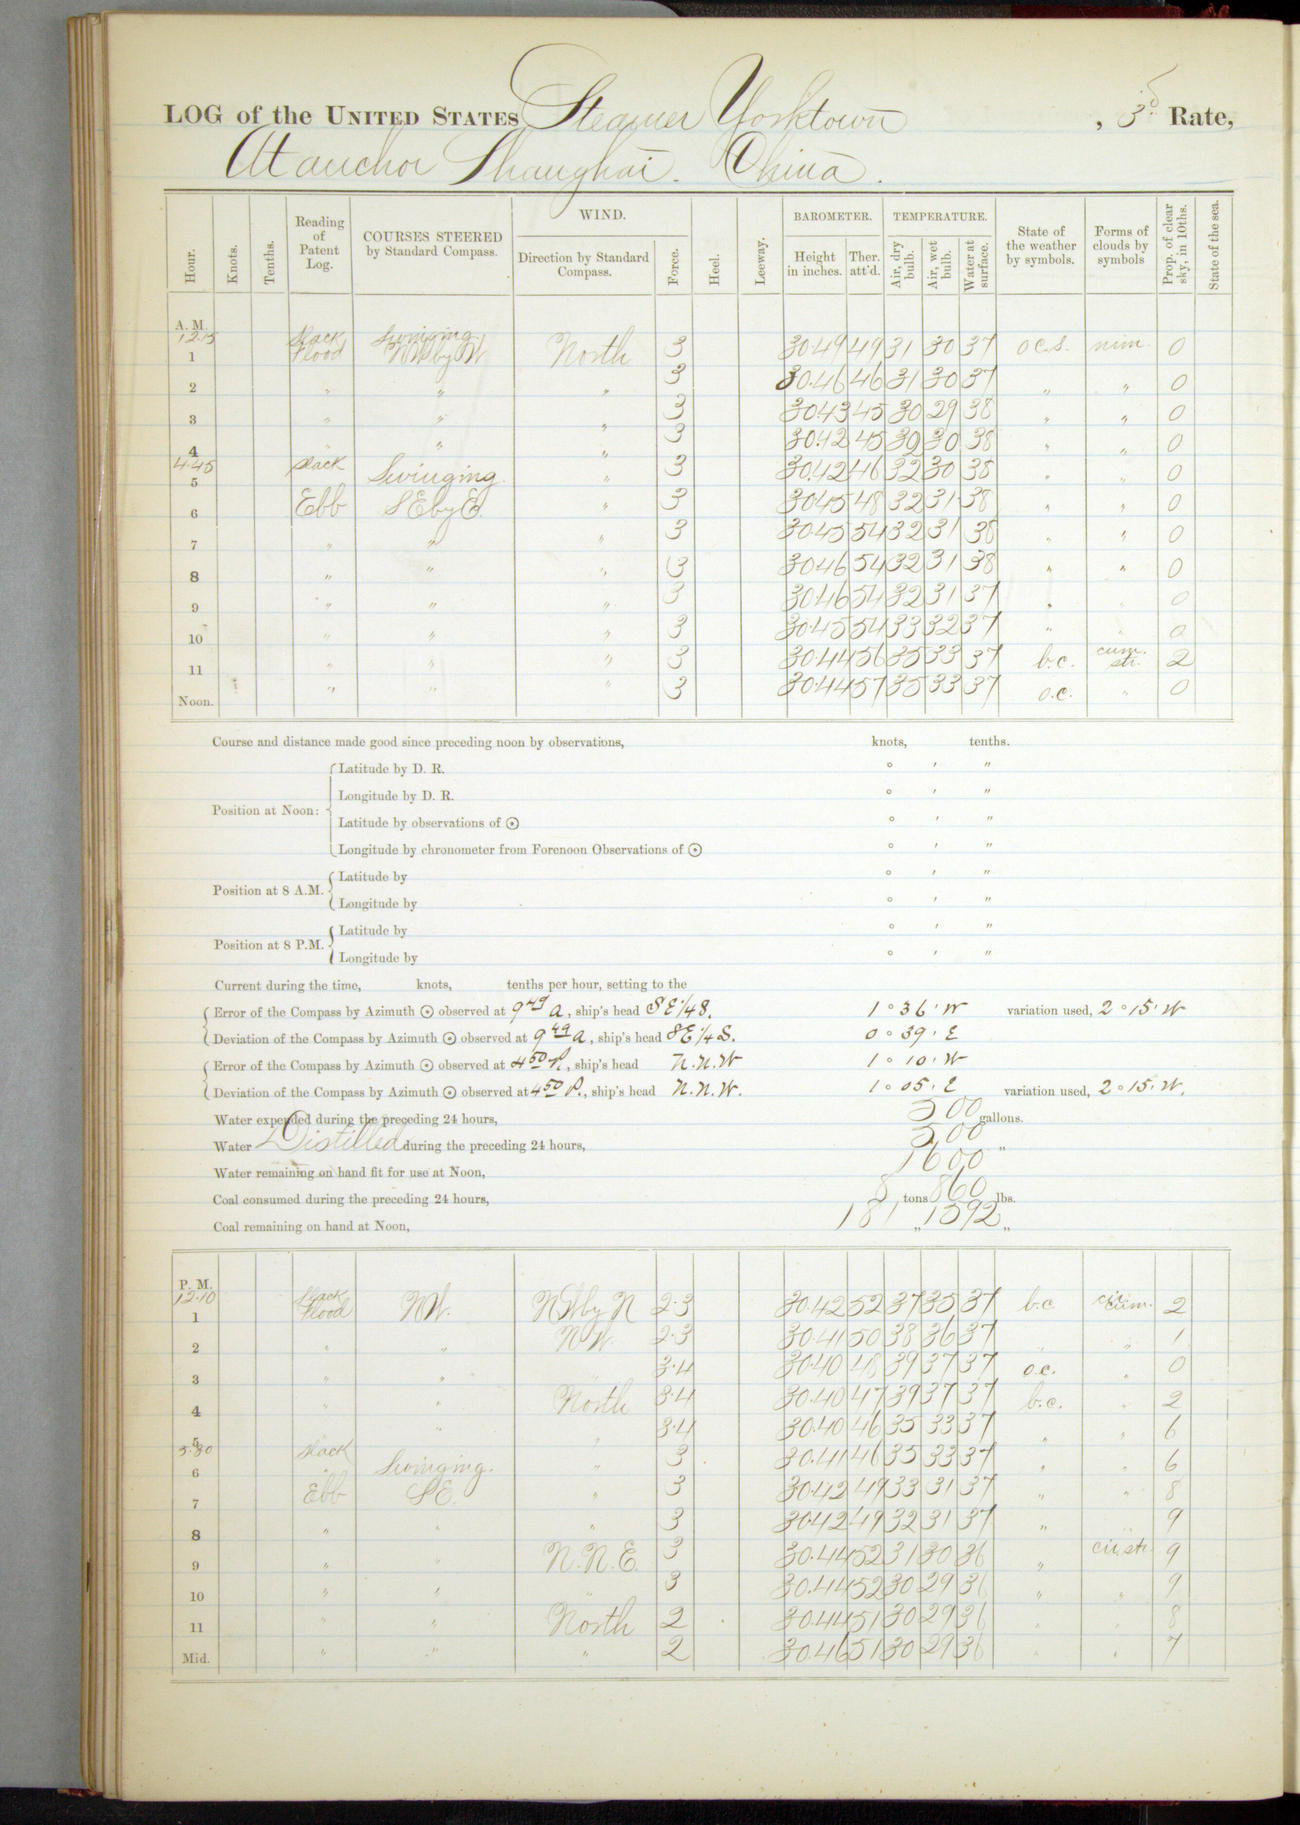 LOG of the UNITED STATES Steamer Yorktown, 3d Rate,
At anchor Shanghai. China.
Hour. Knots. Tenths. Reading of Patent Log. COURSES STEERED by Standard Compass. WIND. Direction by Standard Compass. Force. Heel. Leeway. BAROMETER. Height in inches. Ther. att'd. TEMPERATURE. Air, dry bulb. Air, wet bulb. Water at surface. State of the weather by symbols. Forms of clouds by symbols Prop. of clear sky, in 10ths. State of the sea.
A. M.
12.15 Slack Swinging
1 Flood NW by W North 3 30.49 49 31 30 37 o.c.s. nim. 0
2 " " " 3 30.46 46 31 30 37 " " 0
3 " " " 3 30.43 45 30 29 38 " " 0
4 " " " 3 30.42 45 30 30 38 " " 0
4.45 Slack
5 Swinging. " 3 30.42 46 32 30 38 " " 0
6 Ebb SE by E. " 3 30.45 48 32 31 38 " " 0
7 " " " 3 30.45 54 32 31 38 " " 0
8 " " " 3 30.46 54 32 31 38 " " 0
9 " " " 3 30.46 54 32 31 37 " " 0
10 " " " 3 30.45 54 33 32 37 " " 0
11 " " " 3 30.44 56 35 33 37 b.c. cum. str. 2
Noon. " " " 3 30.44 57 35 33 37 o.c. " 0
Course and distance made good since preceding noon by observations, knots, tenths.
Position at Noon: Latitude by D. R. ° ' "
Longitude by D. R. ° ' "
Latitude by observations of ☉ ° ' "
Longitude by chronometer from Forenoon Observations of ☉ ° ' "
Position at 8 A.M. Latitude by ° ' "
Longitude by ° ' "
Position at 8 P.M. Latitude by ° ' "
Longitude by ° ' "
Current during the time, knots, tenths per hour, setting to the
Error of the Compass by Azimuth ☉ observed at 9 49 a, ship's head SE 1/4 S. 1 ° 36 ' W variation used, 2 ° 15 ' W
Deviation of the Compass by Azimuth ☉ observed at 9 49 a, ship's head SE 1/4 S. 0 ° 39 ' E
Error of the Compass by Azimuth ☉ observed at 4 50 P, ship's head N.N.W 1 ° 10 ' W
Deviation of the Compass by Azimuth ☉ observed at 4 50 P., ship's head N.N.W. 1 ° 05 ' E variation used, 2 ° 15 ' W.
Water expended during the preceding 24 hours, 500 gallons.
Water Distilled during the preceding 24 hours, 500 "
Water remaining on hand fit for use at Noon, 1600
Coal consumed during the preceding 24 hours, 8 tons 860 lbs.
Coal remaining on hand at Noon, 181 " 1592 "
P. M.
12.10 Slack
1 Flood NW. NW by N 2.3 30.42 52 37 35 37 b.c cir. cum. 2
2 " " N.W. 2.3 30.41 50 38 36 37 " " 1
3 " " " 3.4 30.40 48 39 37 37 o.c. " 0
4 " " North 3.4 30.40 47 39 37 37 b.c. " 2
5 " " 3.4 30.40 46 35 33 37 " " 6
5.30 Slack
6 Swinging. " 3 30.41 46 35 33 37 " " 6
7 Ebb SE. " 3 30.42 49 33 31 37 " " 8
8 " " " 3 30.42 49 32 31 37 " " 9
9 " " N.N.E. 3 30.44 52 31 30 36 " cir. str. 9
10 " " " 3 30.44 52 30 29 36 " " 9
11 " " North 2 30.44 51 30 29 36 " " 8
Mid. " " " 2 30.46 51 30 29 36 " " 7